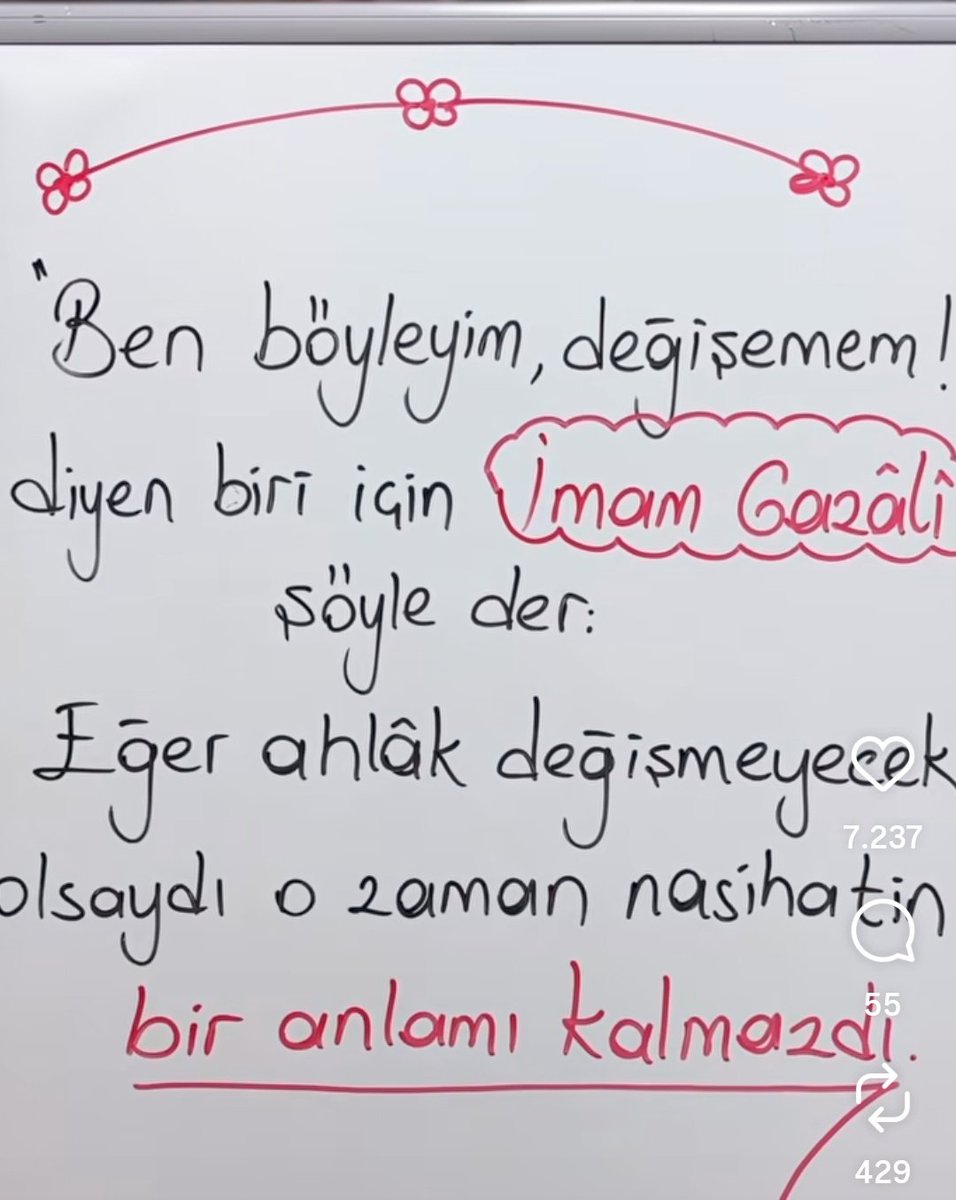 "Ben böyleyim, değişemem!
diyen biri için İmam Gazâlî
şöyle der:
Eğer ahlâk değişmeyecek
7.237
olsaydı o zaman nasihatin
55
bir anlamı kalmazdı.
429